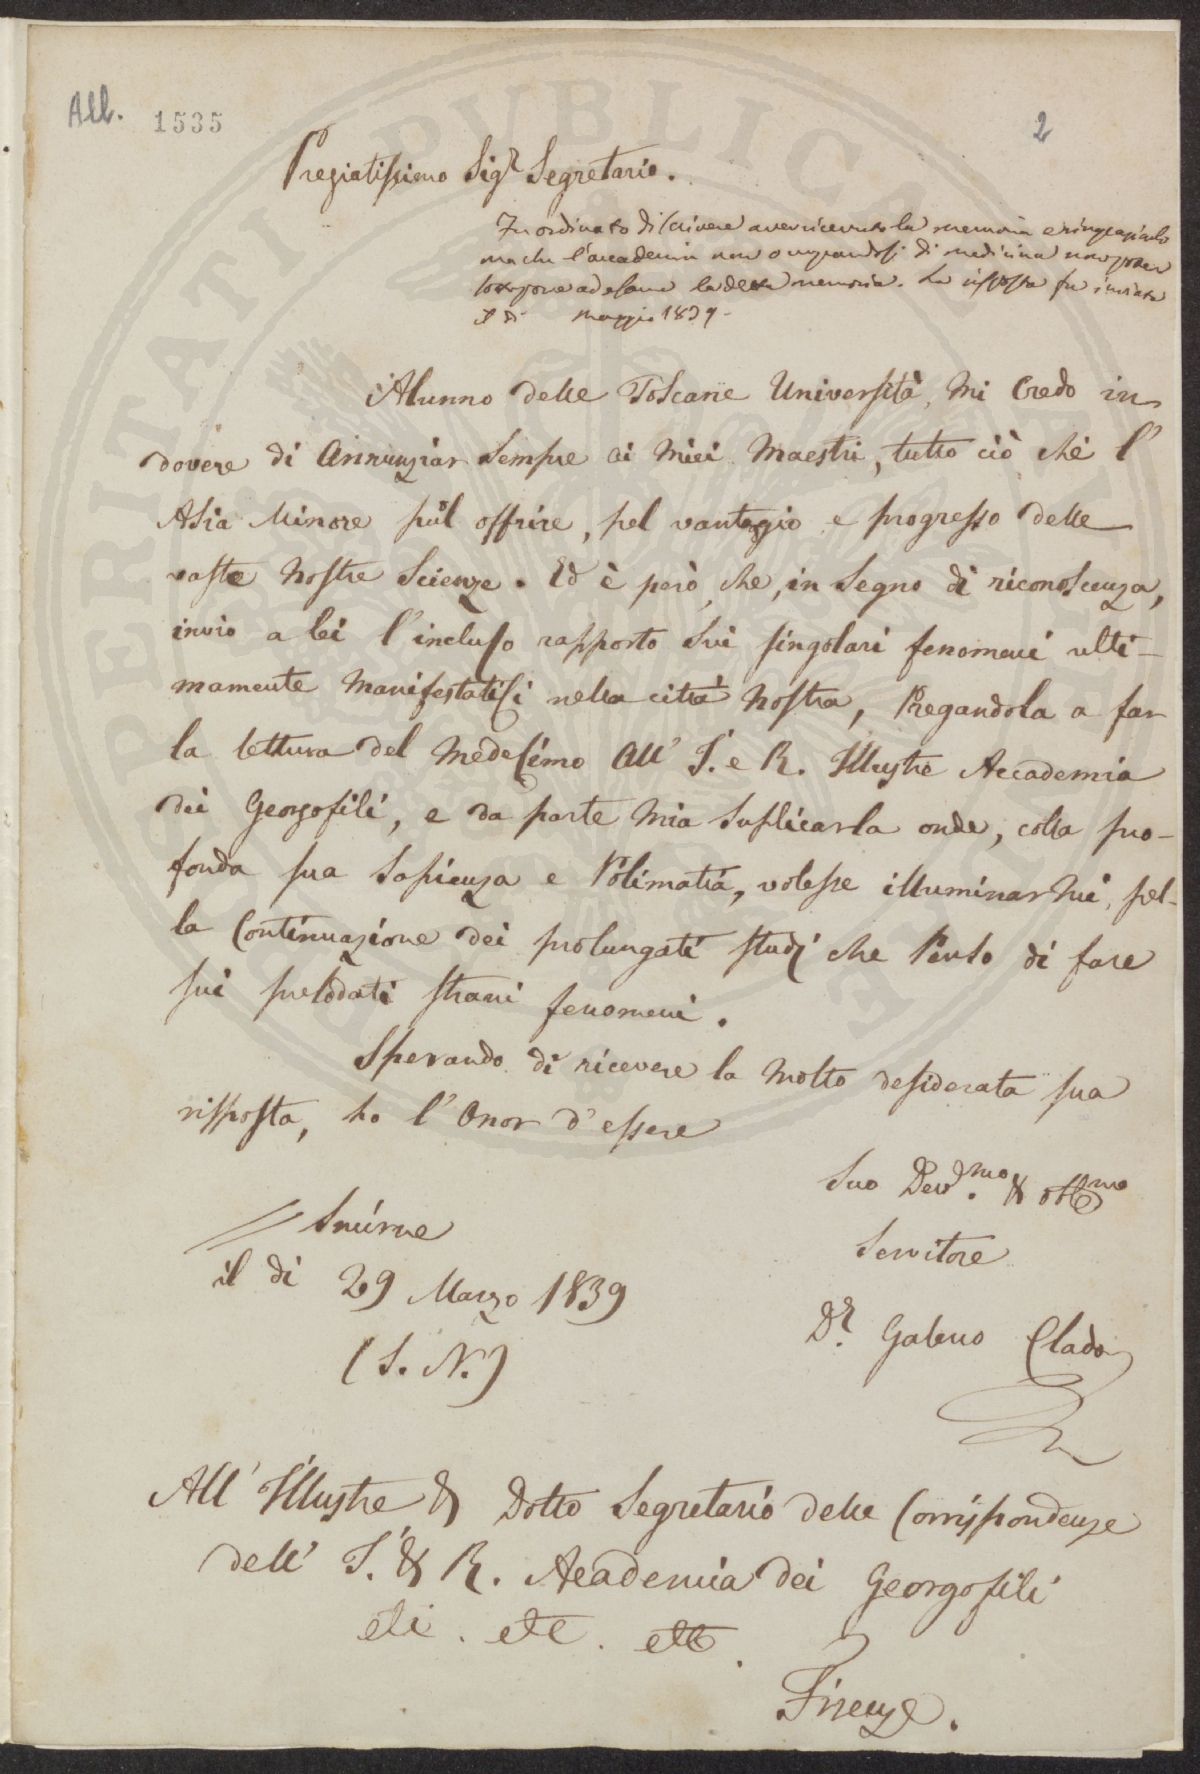 All. 1535
2
Pregiatissimo Sigr Segretario.
Fu ordinato di scrivere aver ricevuto la memoria e ringraziarlo
ma che l'accademia non occupandosi di medicina non poter
sottoporre ad esame la detta memoria. La risposta fu inviata
il dì maggio 1839-
Alunno delle Toscane Università, Mi Credo in
dovere di Annunziar Sempre ai Miei Maestri, tutto ciò che l'
Asia Minore può offrire, pel vantagio e progresso delle
vaste Nostre Scienze. Ed è però che, in Segno di riconoscenza,
invio a lei l'incluso rapporto Sui singolari fenomeni ulti-
mamente Manifestatisi nella città Nostra, Pregandola a far
la lettura del Medesimo All' I. e R. Illustre Accademia
dei Georgofili, e da parte Mia Suplicarla onde, colla pro-
fonda sua Sapienza e Polimatia, volesse illuminarmi, pel-
la Continuazione dei prolungati studj che Penso di fare
sui prelodati strani fenomeni.
Sperando di ricevere la Molto desiderata sua
risposta, ho l'Onor d'essere
Suo Devmo. & obbmo
Servitore
Smirne
il dì 29 Marzo 1839
(S. N.)
Dr. Galeno Clado
All' Illustre & Dotto Segretario delle Corrispondenze
dell' I. & R. Academia dei Georgofili
etc. etc. etc.
Firenze.